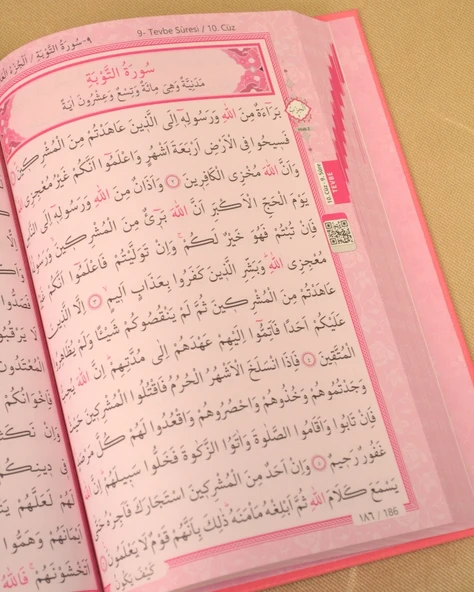 9- Tevbe Sûresi / 10. Cüz
٩-سُورَةُ التَّوْبَةِ / اَلْجُزْءُ
سُورَةُ التَّوْبَةِ
مَدَنِيَّةٌ وَهِىَ مِائَةٌ وَتِسْعٌ وَعِشْرُونَ اٰيَةً
بَرَٓاءَةٌ مِنَ اللّٰهِ وَرَسُولِه۪ٓ اِلَى الَّذ۪ينَ عَاهَدْتُمْ مِنَ الْمُشْرِك۪ينَ
فَس۪يحُوا فِى الْاَرْضِ اَرْبَعَةَ اَشْهُرٍ وَاعْلَمُٓوا اَنَّكُمْ غَيْرُ مُعْجِزِى
وَاَنَّ اللّٰهَ مُخْزِى الْكَافِر۪ينَ ٢ وَاَذَانٌ مِنَ اللّٰهِ وَرَسُولِه۪ٓ اِلَى
يَوْمَ الْحَجِّ الْاَكْبَرِ اَنَّ اللّٰهَ بَر۪ٓىءٌ مِنَ الْمُشْرِك۪ينَ وَرَسُولُهُ
فَاِنْ تُبْتُمْ فَهُوَ خَيْرٌ لَكُمْ وَاِنْ تَوَلَّيْتُمْ فَاعْلَمُٓوا اَنَّكُمْ غَيْرُ
مُعْجِزِى اللّٰهِ وَبَشِّرِ الَّذ۪ينَ كَفَرُوا بِعَذَابٍ اَل۪يمٍ ٣ اِلَّا الَّذ۪ينَ
عَاهَدْتُمْ مِنَ الْمُشْرِك۪ينَ ثُمَّ لَمْ يَنْقُصُوكُمْ شَيْـًٔا وَلَمْ يُظَاهِرُوا
عَلَيْكُمْ اَحَدًا فَاَتِمُّٓوا اِلَيْهِمْ عَهْدَهُمْ اِلٰى مُدَّتِهِمْ اِنَّ اللّٰهَ يُحِبُّ
الْمُتَّق۪ينَ ٤ فَاِذَا انْسَلَخَ الْاَشْهُرُ الْحُرُمُ فَاقْتُلُوا الْمُشْرِك۪ينَ حَيْثُ
وَجَدْتُمُوهُمْ وَخُذُوهُمْ وَاحْصُرُوهُمْ وَاقْعُدُوا لَهُمْ كُلَّ مَرْصَدٍ
فَاِنْ تَابُوا وَاَقَامُوا الصَّلٰوةَ وَاٰتَوُا الزَّكٰوةَ فَخَلُّوا سَب۪يلَهُمْ اِنَّ اللّٰهَ
غَفُورٌ رَح۪يمٌ ٥ وَاِنْ اَحَدٌ مِنَ الْمُشْرِك۪ينَ اسْتَجَارَكَ فَاَجِرْهُ حَتّٰى
يَسْمَعَ كَلَامَ اللّٰهِ ثُمَّ اَبْلِغْهُ مَأْمَنَهُ ذٰلِكَ بِاَنَّهُمْ قَوْمٌ لَا يَعْلَمُونَ ٦
كَيْفَ يَكُونُ
١٨٦ / 186
10. Cüz - 9. Sûre
TEVBE
لَا يَرْقُبُو
الْمُعْتَدُونَ
فَاِخْوَانُكُمْ
وَاِنْ نَكَثُٓوا
ف۪ى د۪ينِكُمْ
لَهُمْ لَعَلَّهُمْ
اَيْمَانَهُمْ وَهَمُّوا
اَتَخْشَوْنَهُمْ فَاللّٰهُ